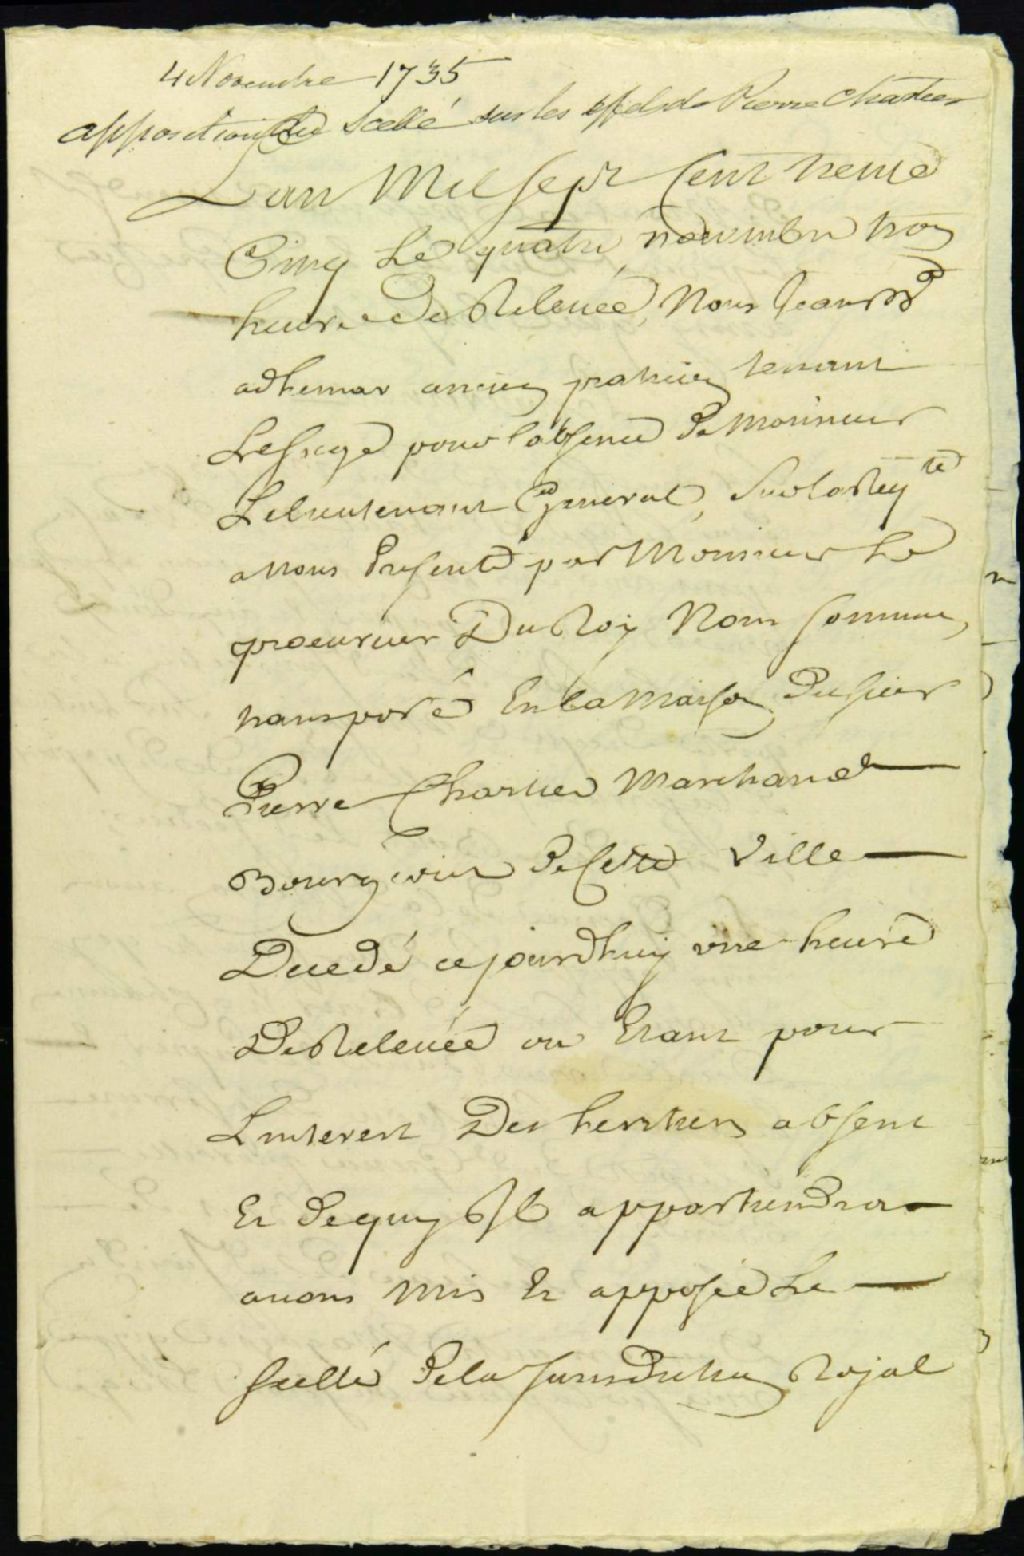 4 Novembre 1735
apposition du Scellé sur les effets de Pierre Chartier
Lan Mil sept Cent trente
Cinq Le quatre novembre trois
heure De Relevée, Nous Jean Bte
adhemar ancien praticien tenant
Lesiege pour labsence De Monsieur
Lelieutenant General, Surla Reqte
a Nous Presenté par Monsieur Le
procureur Du Roy Nous sommes
transporté En la Maison Du sieur
Pierre Chartier Marchand
Bourgeois De Cette Ville
Decedé cejourdhuy une heure
De Relevée ou Etant pour
Linterest Des heritiers absent
Et Dequy Il appartiendra
avons Mis Et apposée Le
scellé Dela Jurisdiction Royal